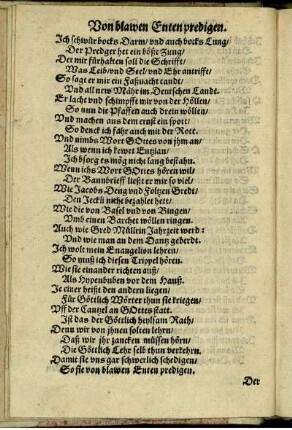 Von blawen Enten predigen.
Ich schwür bocks Darm/ vnd auch bocks Lung/
Der Prediger het ein böse Zung/
Der mir fürhalten soll die Schrifft/
Was Leib/ vnd Seel/ vnd Ehr antrifft/
So sagt er mir ein Faßnacht tandt/
Vnd all new Mähr im Teutschen Landt.
Er lacht vnd schimpfft wir von der Höllen/
So nun die Pfaffen auch drein wöllen/
Vnd machen auß dem ernst ein spott/
So denck ich fahr auch mit der Rott.
Vnd nimbs Wort GOttes von jhm an/
Als wenn ich kewet Entzian/
Ich bsorg es mög nicht lang bestahn.
Wenn ichs Wort GOttes hören will/
Der Bannbrieff liest er mir so viel/
Wie Jacobs Deng vnd Foltzen Gredt/
Den Jeckli nicht bezahlet hett/
Wie die von Basel vnd von Bingen/
Vmb einen Barchet wöllen ringen.
Auch wie Gred Müllerin Jahrzeit werd:
Vnd wie man an dem Dantz geberdt.
Ich wolt mein Euangelium lehren/
So muß ich diesen Trippel hören.
Wie sie einander richten auß/
Als Hippenbuben vor dem Hauß.
Je einer heist den andern liegen/
Für Göttlich Wörter thun sie kriegen/
Vff der Cantzel an GOttes statt.
Ist das der Göttlich heylsam Rath/
Denn wir von jhnen solten lehrn/
Daß wir jhr zancken müssen hörn/
Die Göttlich Lehr selb thun verkehrn.
Damit sie vns gar schwerlich schedigen/
So sie von blawen Enten predigen.
Der